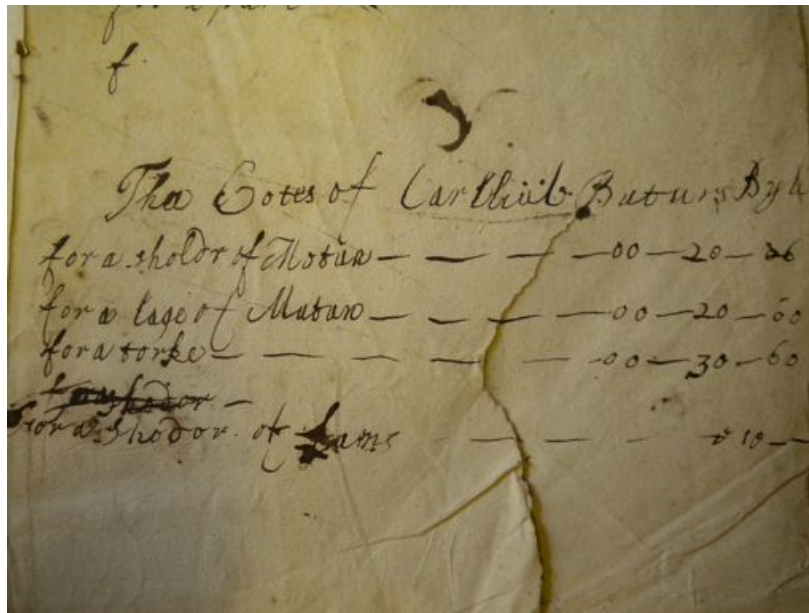 f
The Cotes of Baturs Byl
for a sholdr of Motan — — — — — 00 — 20 —
for a lage of Mutan — — — — — 00 — 20 — 00
for a torke — — — — — — 00 — 30 — 60
for a shodor of Lams — — — — 10 —